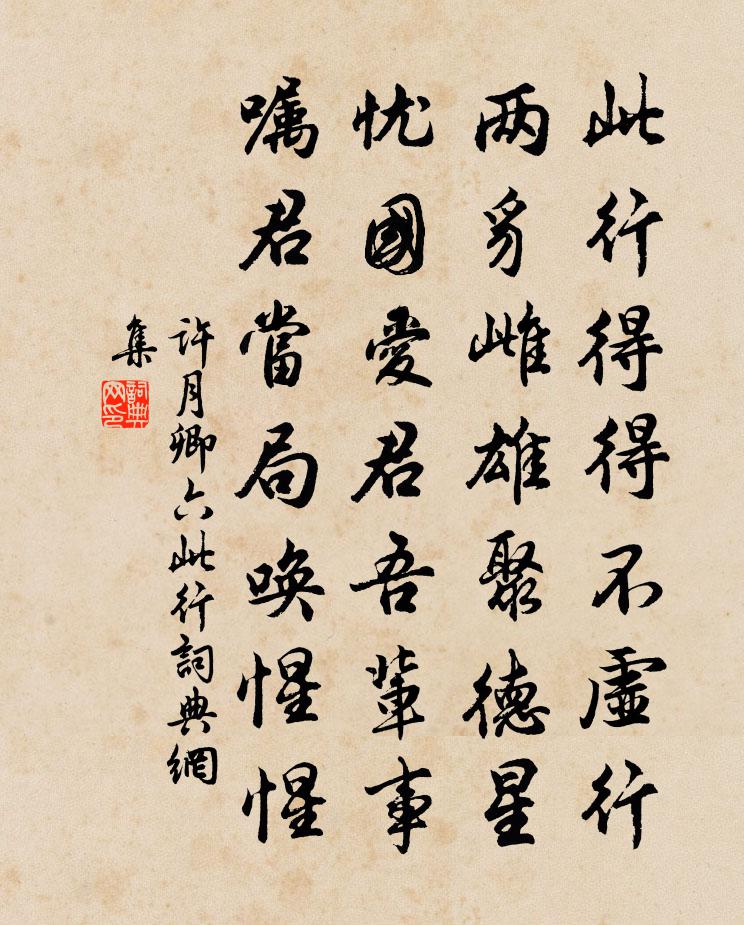 此行得得不虛行
两豸雌雄聚德星
忧國愛君吾輩事
嘱君當局唤惺惺
許月卿六此行詞典網
集
詞典
网印